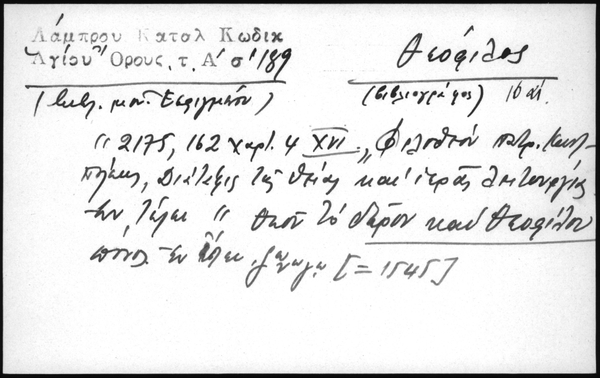 Λάμπρου Καταλ Κωδικ
Ἁγίου Ὄρους, τ. Α' σ' 189
Θεόφιλος
(βιβλ. μον. Ἐσφιγμένου)
(βιβλιογράφος) 16 αἰ.
" 2175, 162 χαρτ. 4 XVI „ Φιλοθέου πατρ. Κωνσ-
πόλεως, Διάταξις τῆς θείας καὶ ἱερᾶς λειτουργίας
ἐν τέλει " Θεοῦ τὸ δῶρον καὶ Θεοφίλου
πόνος ἐν ἔτει [=1545]